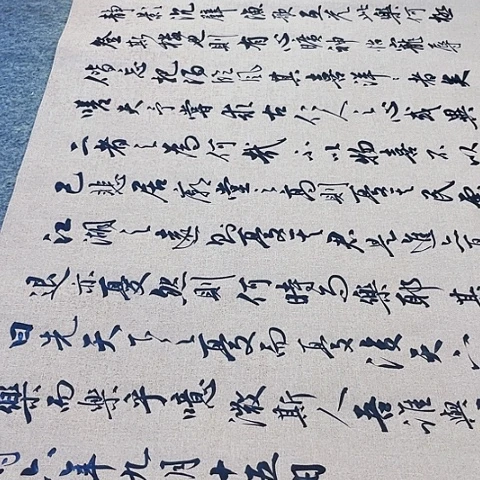 靜影沉璧漁歌互答此樂何極
登斯樓也則有心曠神怡寵辱
偕忘把酒臨風其喜洋洋者矣
嗟夫予嘗求古仁人之心或異
二者之為何哉不以物喜不以
己悲居廟堂之高則憂其民
江湖之遠則憂其君是進亦
退亦憂然則何時而樂耶其
曰先天下之憂而憂後天下
樂而樂乎噫微斯人吾誰與
六年九月十五日